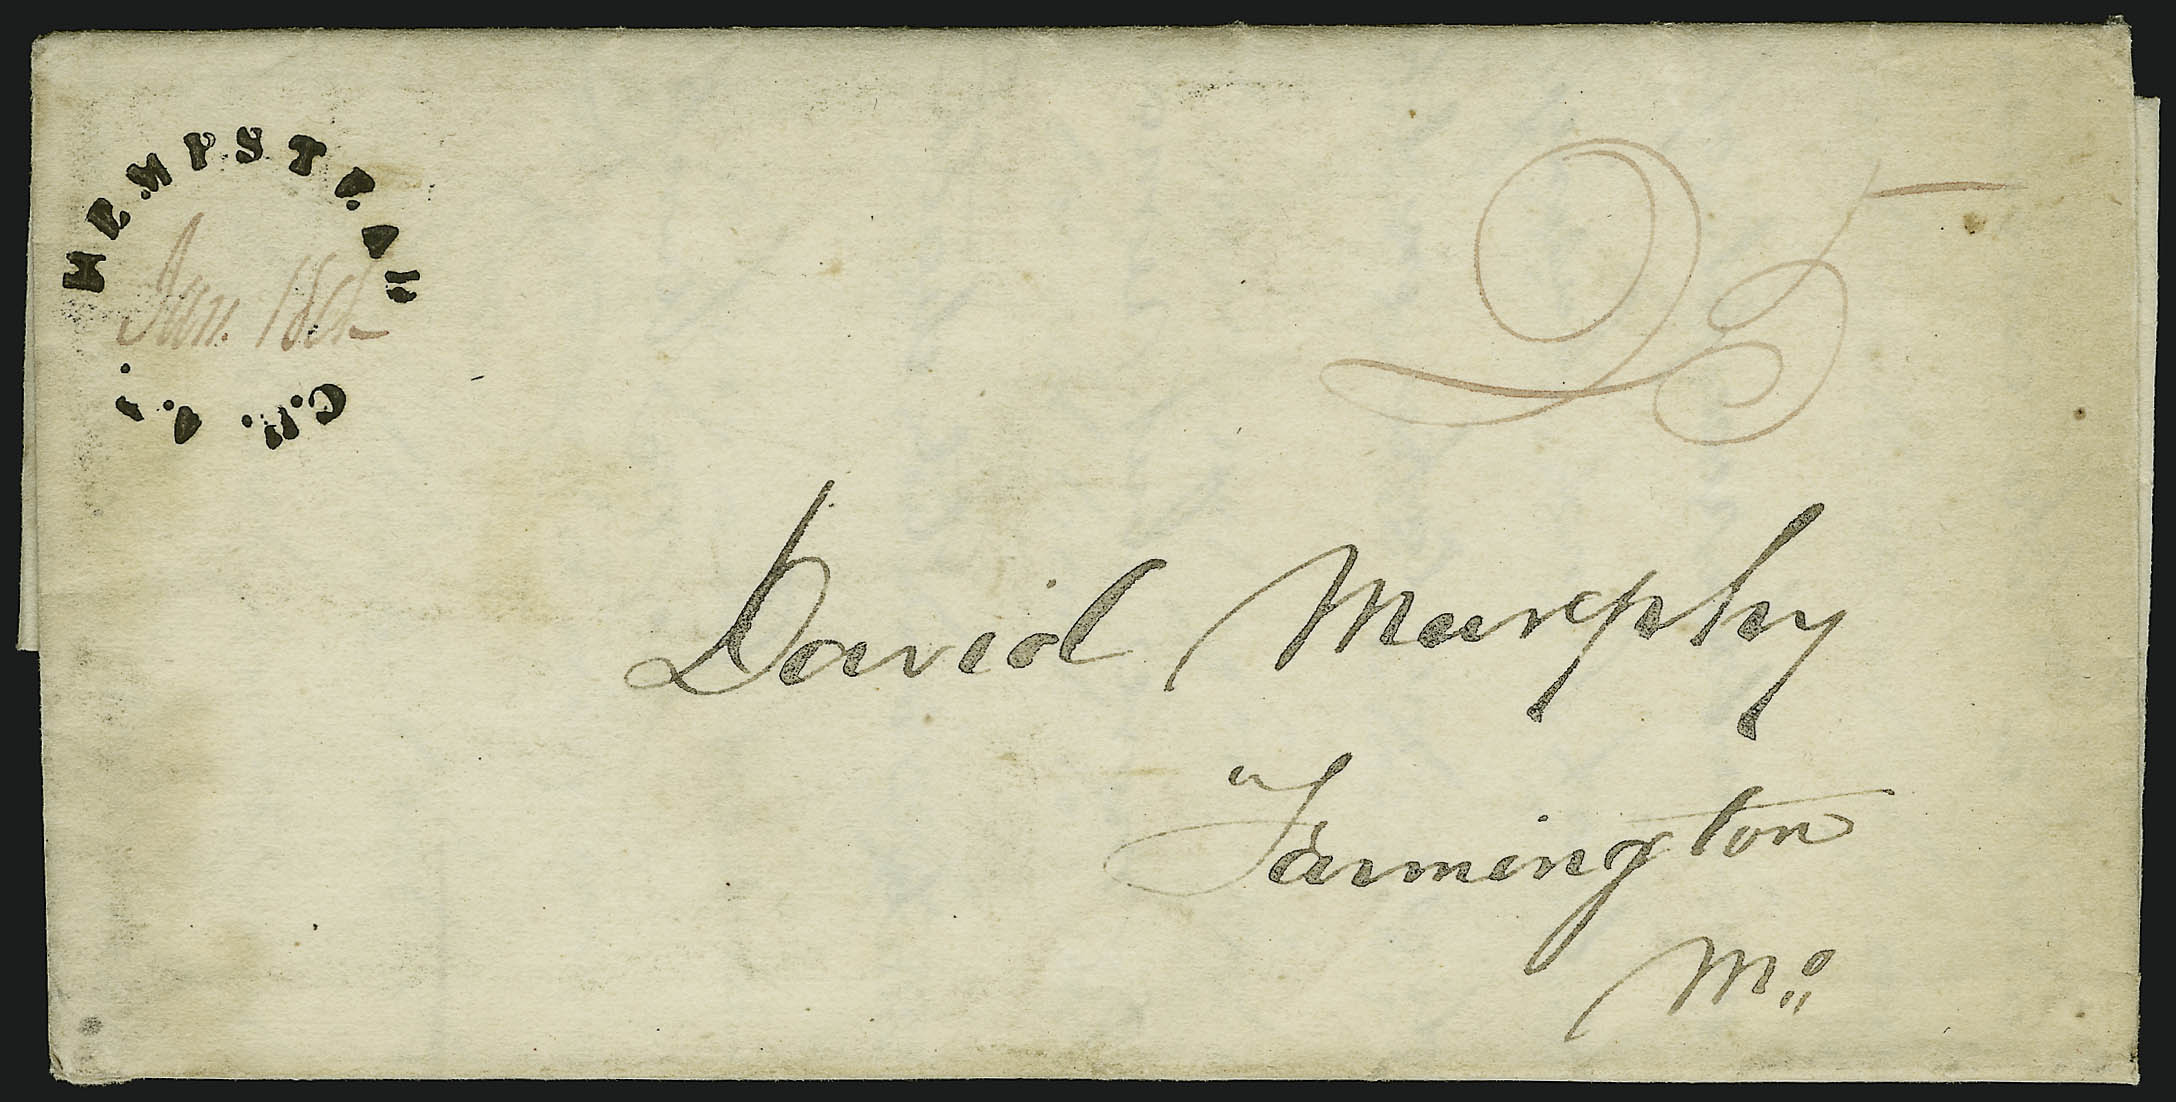 HEMPSTEAD
Jan. 18th
C.H. A.T.
25
David Murphy
Farmington
Mo